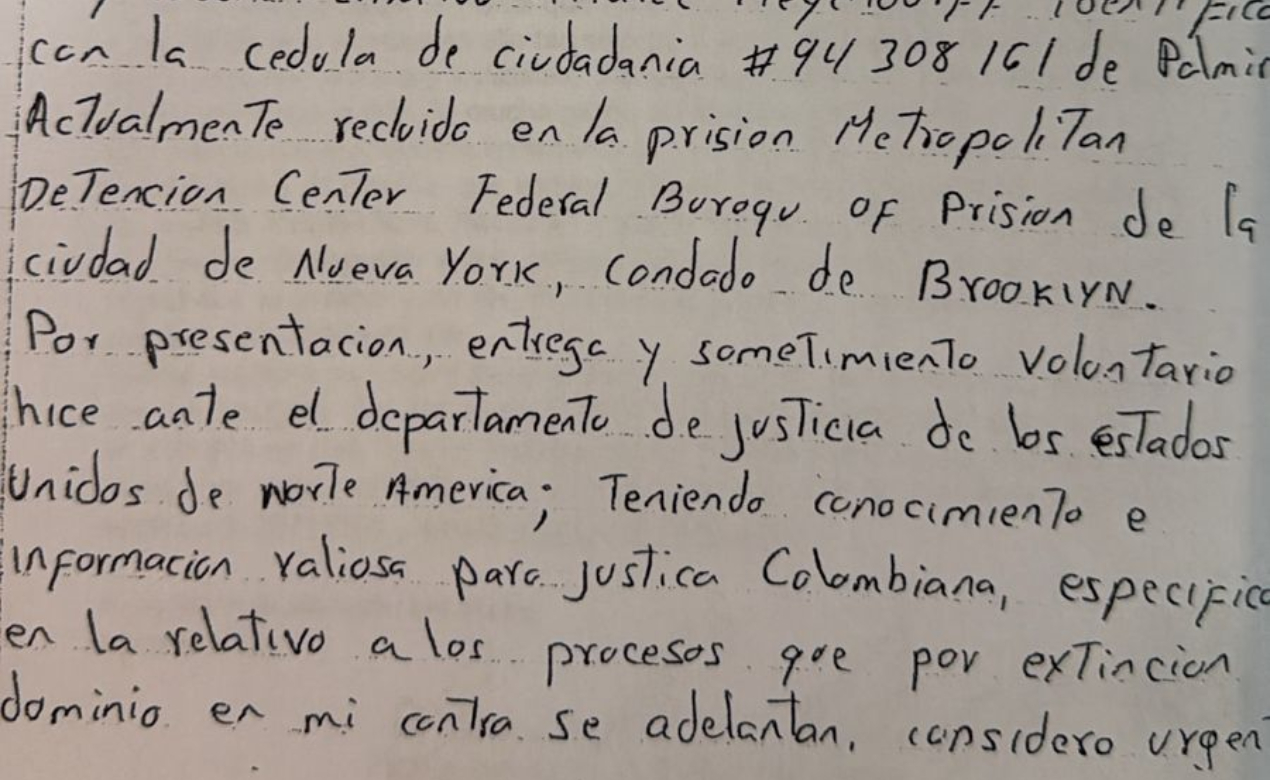 con la cedula de ciudadania # 94 308 161 de Palmir
Actualmente recluido en la prision Metropolitan
Detencion Center Federal Buroqu of Prision de la
ciudad de Nueva York, condado de Brooklyn.
Por presentacion, entrega y sometimiento voluntario
hice ante el departamento de justicia de los estados
Unidos de Norte America; Teniendo conocimiento e
informacion valiosa para justica Colombiana, especifica
en la relativo a los procesos que por extincion
dominio en mi contra se adelantan, considero urgent